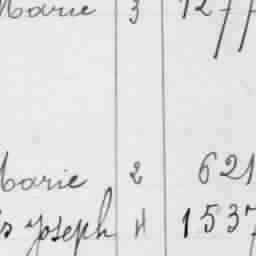 Marie 3 1277
Marie 2 621
Joseph 4 1537